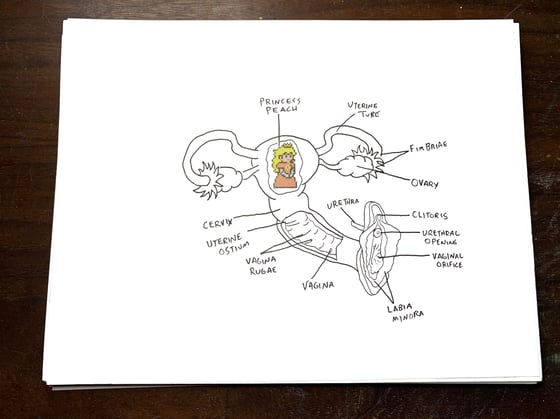 PRINCESS
PEACH
UTERINE
TUBE
FIMBRIAE
OVARY
URETHRA
CLITORIS
CERVIX
URETHRAL
OPENING
UTERINE
OSTIUM
VAGINAL
ORIFICE
VAGINA
RUGAE
VAGINA
LABIA
MINORA